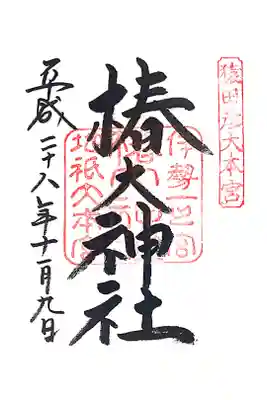 猿田彦大本宮
椿大神社
伊勢一之宮
地祇大本宮
平成二十八年十一月九日